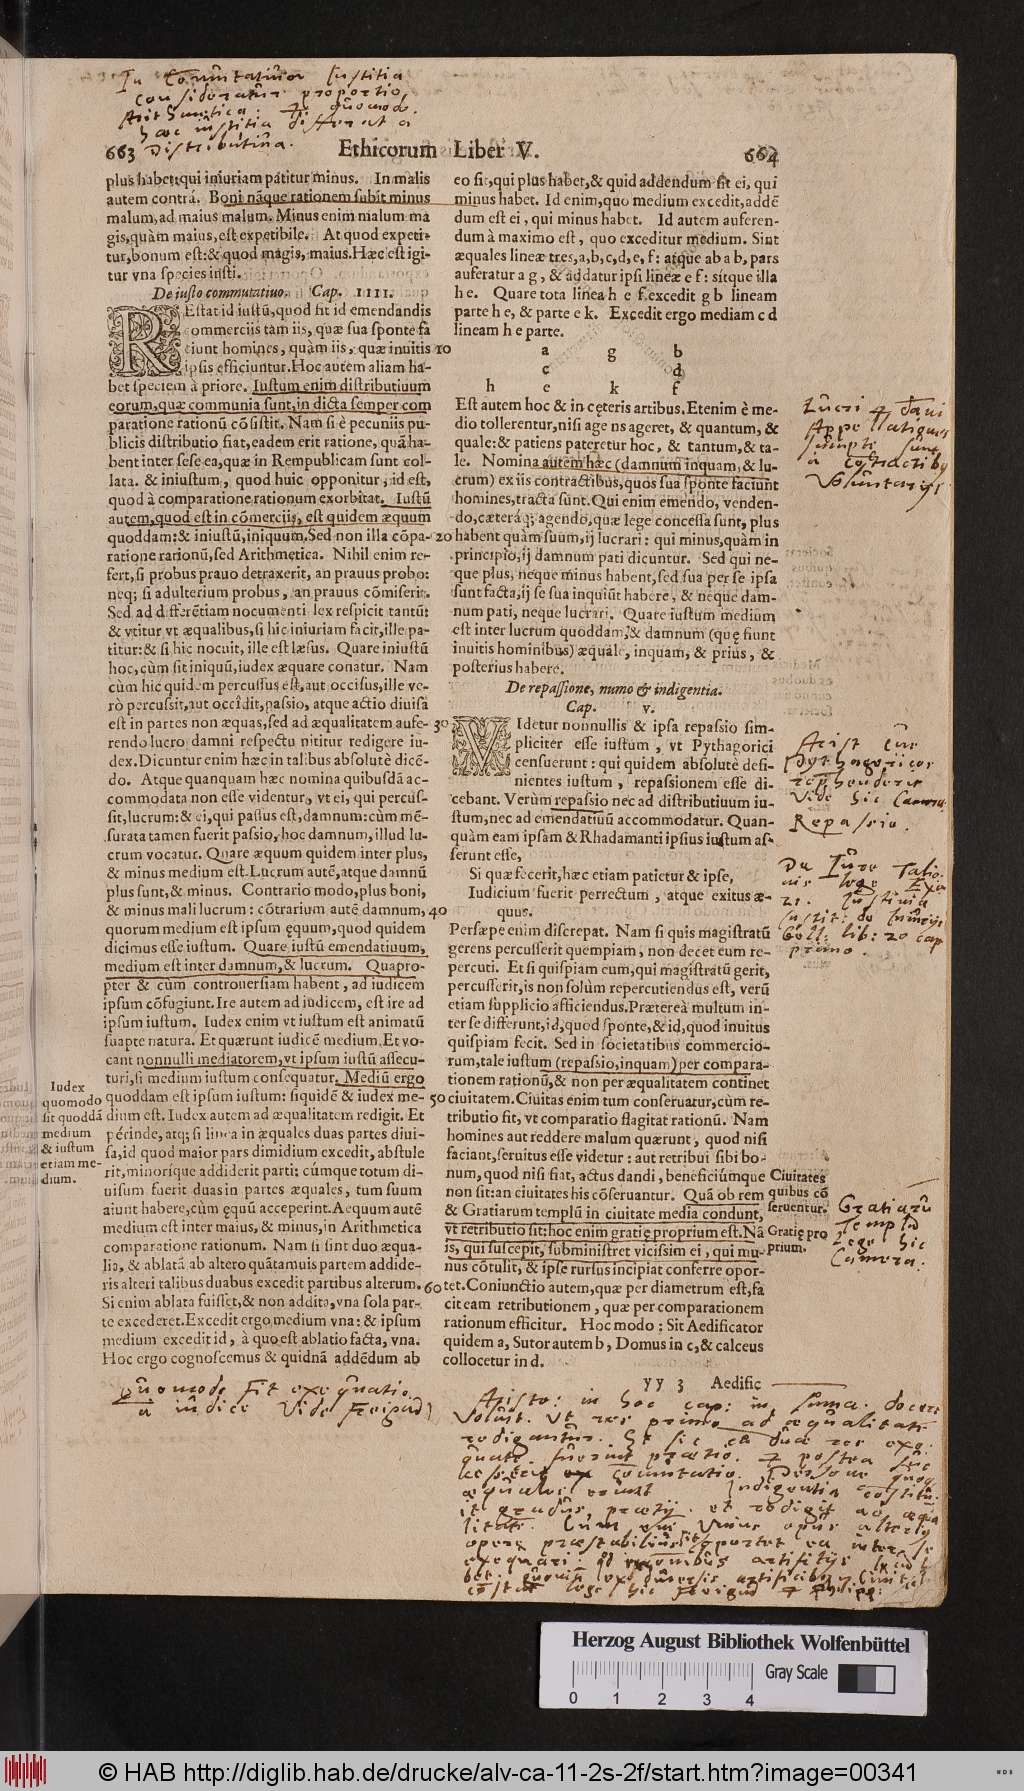 In Commutatiuâ Iustitia
consideratur proportio
Arithmetica. et quomodo
hæc iustitia differat a
Distributiua.
663 Ethicorum Liber V. 664
plus habet: qui iniuriam patitur minus. In malis
autem contrá. Boni nãque rationem subit minus
malum, ad maius malum. Minus enim malum ma
gis, quàm maius, est expetibile. At quod expeti-
tur, bonum est: & quod magis, maius. Hæc est igi-
tur vna species iusti.
De iusto commutatiuo. Cap. IIII.
REstat id iustũ, quod fit id emendandis
commerciis tam iis, quæ sua sponte fa
ciunt homines, quàm iis, quæ inuitis 10
ipsis efficiuntur. Hoc autem aliam ha-
bet speciem à priore. Iustum enim distributiuum
eorum, quæ communia sunt, in dicta semper com
paratione rationũ cõsistit. Nam si è pecuniis pu-
blicis distributio fiat, eadem erit ratione, quã ha-
bent inter sese ea, quæ in Rempublicam sunt col-
lata. & iniustum, quod huic opponitur, id est,
quod à comparatione rationum exorbitat. Iustũ
autem, quod est in cõmerciis, est quidem æquum
quoddam: & iniustũ, iniquum. Sed non illa cõpa- 20
ratione rationũ, sed Arithmetica. Nihil enim re-
fert, si probus prauo detraxerit, an prauus probo:
neq; si adulterium probus, an prauus cõmiserit.
Sed ad differẽtiam nocumenti lex respicit tantũ:
& vtitur vt æqualibus, si hic iniuriam facit, ille pa-
titur: & si hic nocuit, ille est læsus. Quare iniustũ
hoc, cùm sit iniquũ, iudex æquare conatur. Nam
cùm hic quidem percussus est, aut occisus, ille ve-
rò percussit, aut occîdit, passio, atque actio diuisa
est in partes non æquas, sed ad æqualitatem aufe- 30
rendo lucro damni respectu nititur redigere iu-
dex. Dicuntur enim hæc in talibus absolutè dicẽ-
do. Atque quanquam hæc nomina quibusdã ac-
commodata non esse videntur, vt ei, qui percus-
sit, lucrum: & ei, qui passus est, damnum: cùm mẽ-
surata tamen fuerit passio, hoc damnum, illud lu-
crum vocatur. Quare æquum quidem inter plus,
& minus medium est. Lucrum autẽ, atque damnũ
plus sunt, & minus. Contrario modo, plus boni,
& minus mali lucrum: cõtrarium autẽ damnum, 40
quorum medium est ipsum ęquum, quod quidem
dicimus esse iustum. Quare iustũ emendatiuum,
medium est inter damnum, & lucrum. Quapro-
pter & cùm controuersiam habent, ad iudicem
ipsum cõfugiunt. Ire autem ad iudicem, est ire ad
ipsum iustum. Iudex enim vt iustum est animatũ
suapte natura. Et quærunt iudicẽ medium. Et vo-
cant nonnulli mediatorem, vt ipsum iustũ assecu-
turi, si medium iustum consequatur. Mediũ ergo
quoddam est ipsum iustum: siquidẽ & iudex me- 50
dium est. Iudex autem ad æqualitatem redigit. Et
périnde, atq; si linea in æquales duas partes diui-
sa, id quod maior pars dimidium excedit, abstule
rit, minoríque addiderit parti: cúmque totum di-
uisum fuerit duas in partes æquales, tum suum
aiunt habere, cùm ęquũ acceperint. Aequum autẽ
medium est inter maius, & minus, in Arithmetica
comparatione rationum. Nam si sint duo æqua-
lia, & ablatã ab altero quãtamuis partem addide-
ris alteri talibus duabus excedit partibus alterum. 60
Si enim ablata fuisset, & non addita, vna sola par-
te excederet. Excedit ergo medium vna: & ipsum
medium excedit id, à quo est ablatio facta, vna.
Hoc ergo cognoscemus & quidnã addẽdum ab
Iudex
quomodo
sit quoddã
medium
& iustum
etiam me-
dium.
Quomodo fit exequatio
a iudice Vide
eo sit, qui plus habet, & quid addendum sit ei, qui
minus habet. Id enim, quo medium excedit, addẽ
dum est ei, qui minus habet. Id autem auferen-
dum à maximo est, quo exceditur medium. Sint
æquales lineæ tres, a, b, c, d, e, f: atque ab a b, pars
auferatur a g, & addatur ipsi lineæ e f: sitque illa
h e. Quare tota linea h e f. excedit g b lineam
parte h e, & parte e k. Excedit ergo mediam c d
lineam h e parte.
a g b
c d
h e k f
Est autem hoc & in cęteris artibus. Etenim è me-
dio tollerentur, nisi agens ageret, & quantum, &
quale: & patiens pateretur hoc, & tantum, & ta-
le. Nomina autem hæc (damnum inquam, & lu-
crum) ex iis contractibus, quos sua sponte faciunt
homines, tracta sunt. Qui enim emendo, venden-
do, cæteráq; agendo, quæ lege concessa sunt, plus
habent quàm suum, ij lucrari: qui minus, quàm in
principio, ij damnum pati dicuntur. Sed qui ne-
que plus, neque minus habent, sed sua per se ipsa
sunt facta, ij se sua inquiũt habere, & neque dam-
num pati, neque lucrari. Quare iustum medium
est inter lucrum quoddam, & damnum (quę fiunt
inuitis hominibus) æquale, inquam, & priùs, &
posterius habere.
De repassione, numo & indigentia.
Cap. v.
VIdetur nonnullis & ipsa repassio sim-
pliciter esse iustum, vt Pythagorici
censuerunt: qui quidem absolutè defi-
nientes iustum, repassionem esse di-
cebant. Verùm repassio nec ad distributiuum iu-
stum, nec ad emendatiuũ accommodatur. Quan-
quàm eam ipsam & Rhadamanti ipsius iustum as-
serunt esse,
Si quæ fecerit, hæc etiam patietur & ipse,
Iudicium fuerit perrectum, atque exitus æ-
quus.
Persæpe enim discrepat. Nam si quis magistratũ
gerens percusserit quempiam, non decet eum re-
percuti. Et si quispiam eum, qui magistratũ gerit,
percusserit, is non solùm repercutiendus est, verũ
etiam supplicio afficiendus. Prætereà multum in-
ter se differunt, id, quod sponte, & id, quod inuitus
quispiam fecit. Sed in societatibus commercio-
rum, tale iustum (repassio, inquam) per compara-
tionem rationũ, & non per æqualitatem continet
ciuitatem. Ciuitas enim tum conseruatur, cùm re-
tributio fit, vt comparatio flagitat rationũ. Nam
homines aut reddere malum quærunt, quod nisi
faciant, seruitus esse videtur: aut retribui sibi bo-
num, quod nisi fiat, actus dandi, beneficiúmque
non sit: an ciuitates his cõseruantur. Quã ob rem
& Gratiarum templũ in ciuitate media condunt,
vt retributio sit: hoc enim gratię proprium est. Nã
is, qui suscepit, subministret vicissim ei, qui mu-
nus cõtulit, & ipse rursus incipiat conferre opor-
tet. Coniunctio autem, quæ per diametrum est, fa
cit eam retributionem, quæ per comparationem
rationum efficitur. Hoc modo; Sit Aedificator
quidem a, Sutor autem b, Domus in c, & calceus
collocetur in d.
yy 3 Aedific
Lucri et Dani
Appellationes
sumptæ sunt
a cõtractib9
Voluntarijs
Arist cur
Pythagoricos
reprehenderit
Vide hic Camera.
Repassio.
De Iure Talio-
nis lege Exo
21. Iustinia
Instit: de Iniurijs
Gell: lib: 20 cap
primo.
Ciuitates
quibus cõ
seruentur.
Gratię pro
prium.
Gratiarũ
Templũ
Lege hic
Camera:
Aristo: in hoc cap: in summa docere
Voluit. Ut res primo ad æqualitatẽ
redigantur. Et sic
Herzog August Bibliothek Wolfenbüttel
Gray Scale
0 1 2 3 4
© HAB http://diglib.hab.de/drucke/alv-ca-11-2s-2f/start.htm?image=00341